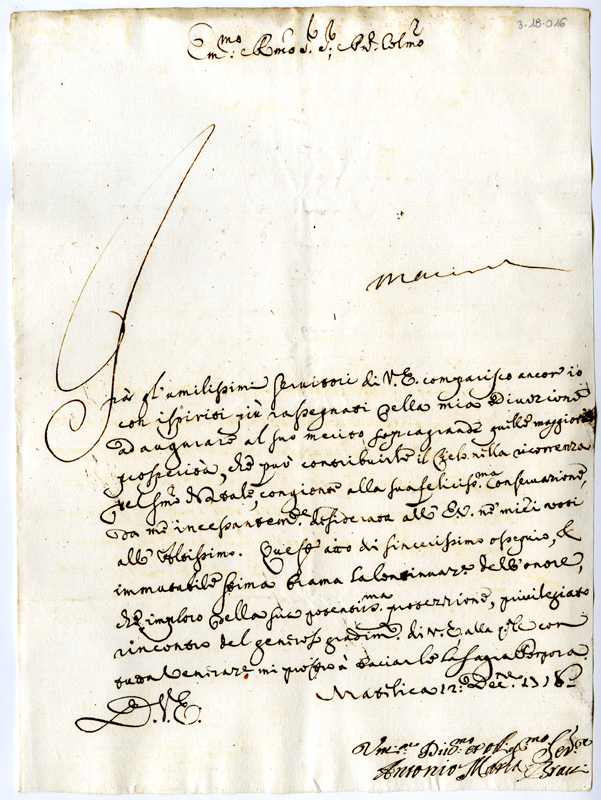 3-18-016
Em.mo e Rmo Sr. Sr. P.ron Colmo
Frà gl'umilissimi servitori di V. E. comparisco ancor io
con i spiriti più rassegnati della mia divozione
ad augurare al suo merito sopragrande quelle maggiori
prosperità, che può contribuirle il Cielo nella ricorrenza
del Smo Natale, congionte alla sua felicis.ma conservazione,
da me incessantem.te desiderata all' E. V. ne miei voti
all' Altissimo. Quest' atto di sincerissimo ossequio, e
immutabile stima brama la continuaz.e dell'onore,
che imploro della sua potentis.ma protezzione, privilegiato
rincontro del generoso gradim.to di V. E. alla q.le con
tutta veneraz.e mi prostro à baciarle la Sagra Porpora
Matilica 12 Dec.e 1718
D. V. E.
Vm.e Div.mo et obligat.mo Ser.re
Antonio Maria Bracci